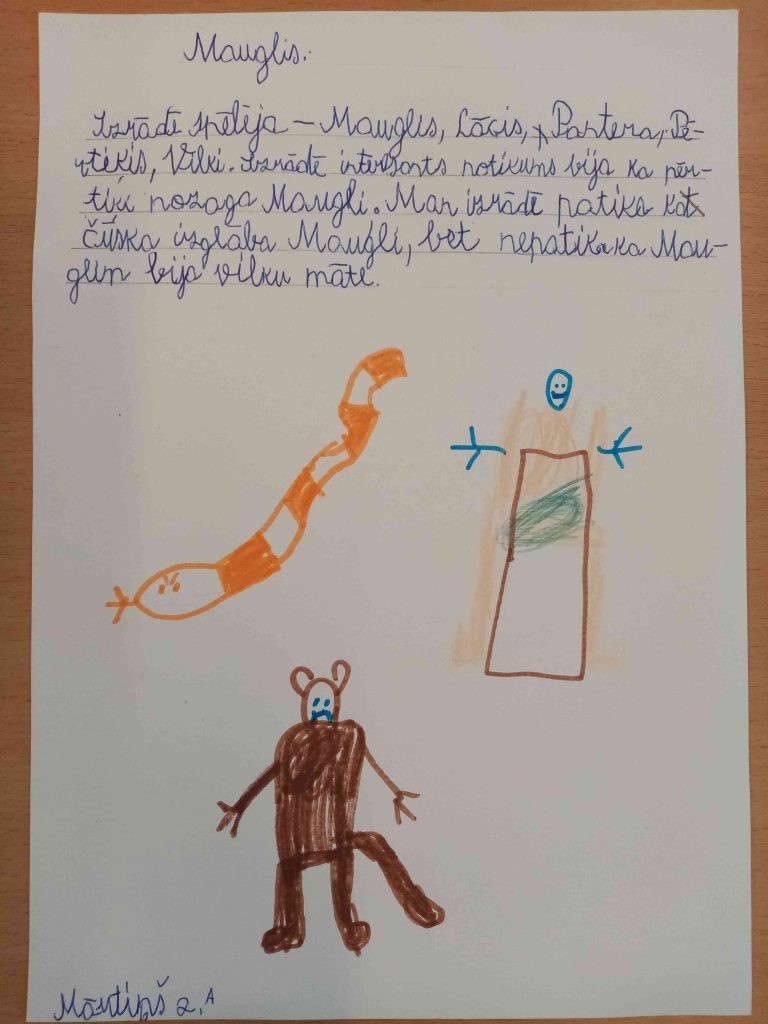 Mauglis.
Izrādē spēlēja – Mauglis, Lācis, Pantera, Pē-
rtiķis, Vilki. Izrādē interisants notikums bija ka pēr-
tiķi nozaga Maugli. Man izrādē patika ka
čūska izglāba Maugli, bet nepatika ka Mau-
glim bija vilku māte.
Mārtiņš 2. A